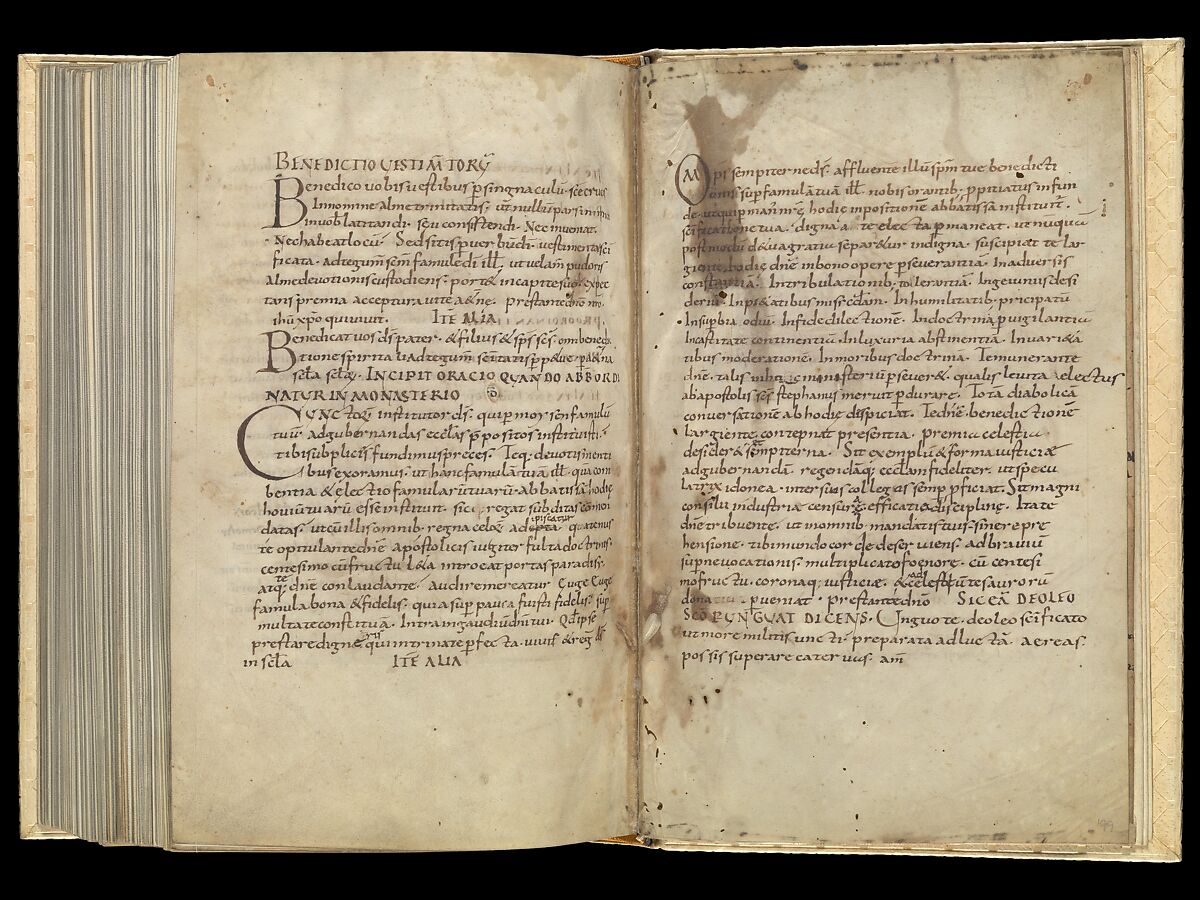 BENEDICTIO VESTIM̄TORŪ
Benedico vobis vestibus p singnaculū sc̄e crucis
In nomine alme trinitatis ut nullū pars inimica
invob latitandi seu consistendi Nec inveniat
Nec habeat locū Sed sitis p uer bū di vestimenta sc̄i
ficata ad tegum̄ sem̄ famule di ill ut uelam̄ pudoris
Alme devotionis custodiens port& in capite suo & expec
tans premia acceptura vite a&ne prestante dn̄o nr̄o
ihū xp̄o qui vivit ITĒ ALIA
Benedicat vos ds̄ pater & filius & sp̄s sc̄s omi bened
tione spiritali Adtegum̄ sc̄itatis p p&ue p a&na
sc̄la sc̄lor INCIPIT ORACIO QUANDO ABB ORDI
NATUR IN MONASTERIO
CUNCTOR institutor ds̄ qui p moysen famulū
tuū ad gubernandas eccl̄as p positos instituisti
tibi supplicis fundimus preces Teq devotis menti
bus exoramus ut hanc famulā tuā ill quā con
bentia & electio famularū tuarū abbatissā hodie
hoviū tuarū esse instituit sic regat subditas comen
datas ut cū illis omnib regna celor adipiscatur quatenus
te opitulante dn̄e apostolicis iugiter fulta doctrinis
centesimo cū fructu l&a introeat portas paradisi
atq te dn̄e conlaudante Audire mereatur Euge Euge
famula bona & fidelis quia sup pauca fuisti fidelis sup
multa te constituā Intra in gaudiū dn̄i tui Qd ipse
prestare digneris qui in trinitate pfecta vivis & reg ds
in sc̄la ITĒ ALIA
Omp̄s sempiterne ds̄ affluente illū sp̄m tue benedicti
onis sup famulā tuā ill nobis orantib ppitiatus infun
de ut qui p manū nr̄ē hodie inpositionē abbatissā instituit
sc̄ificatione tua digna a te electa p maneat ut nunquā
postmodū d&ua gratiu separ&ur indigna suscipiat te lar
giente hodie dn̄e in bono opere pseverantiā In adversis
constantiā In tribulationib tolerantiā In ieiuniis desi
deriū In pi&atibus misc̄diam In humilitatib pricipatū
In supbia odiū In fide dilectionē In doctrina p uigilantiā
In castitate continentiā In luxuria abstinentiā In vari&a
tibus moderationē In moribus doctrina Te munerante
dn̄e talis in hoc ministeriū p sever& qualis leuita electus
ab apostolis sc̄s stephanus meruit p durare Totā diabolica
conversationē ab hodie dispiciat Te dn̄e benedictionē
largiente contepnat presentia premia celestia
desider& sempiterna Sit exemplū & forma iusticiæ
ad gubernandā regendāq eccl̄am fideliter ut specu
latrix idonea inter suos collegas semp pficiat Sit magni
consilii industriæ censuræ efficatia disciplinę Ita te
dn̄e tribuente ut in omnib mandatis tuis sine repre
hensione tibi mundo corde deserviens ad braviū
supne vocationis multiplicato foenore cū centesi
mo fructu coronaq iusticiæ & ad celestiū tesaurorū
donativa pveniat Prestante dn̄o SIC EĀ DE OLEO
SC̄O PUNGUAT DICENS Unguo te de oleo sc̄ificato
ut more militis uncti preparata ad luctā aereas
possis superare catervas am̄
199